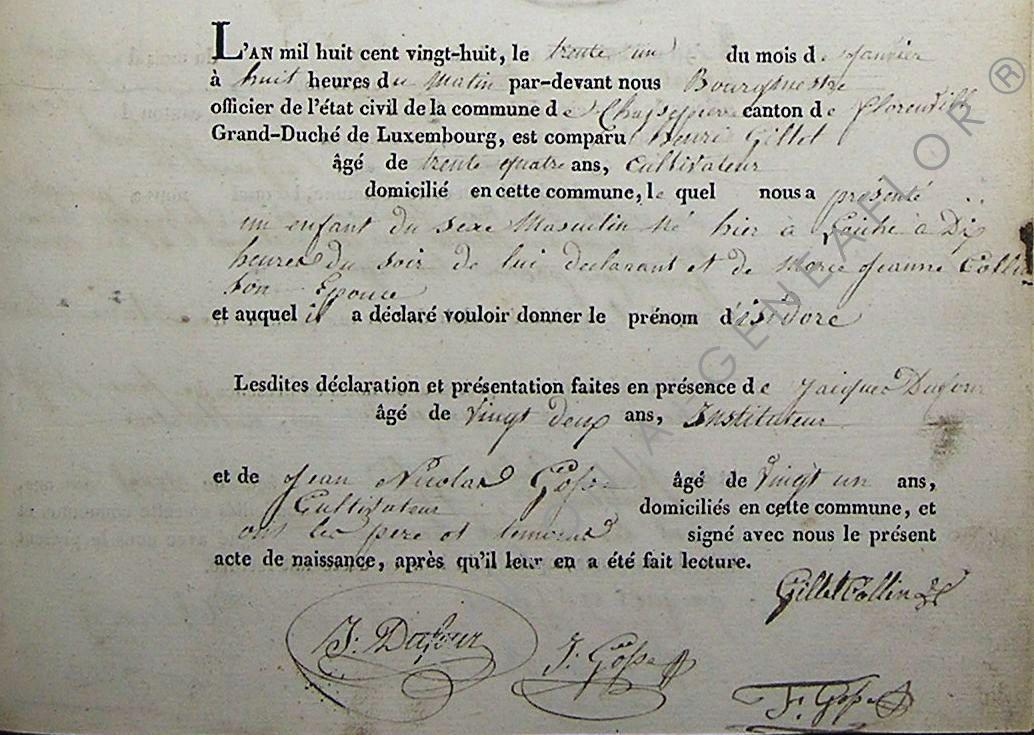 L'AN mil huit cent vingt-huit, le trente un du mois de Janvier
à huit heures du Matin par-devant nous Bourgmestre
officier de l'état civil de la commune de Chassepierre canton de florenville
Grand-Duché de Luxembourg, est comparu henri Gillet
âgé de trente quatre ans, Cultivateur
domicilié en cette commune, le quel nous a présenté
un enfant du sexe Masculin Né hier à Laiche à Dix
heures du soir de lui declarant et de Marie Jeanne Collin
son Epouse
et auquel il a déclaré vouloir donner le prénom d'isidore
Lesdites déclaration et présentation faites en présence de Jacques Dufour
âgé de vingt deux ans, Instituteur
et de Jean Nicolas Gosse âgé de vingt un ans,
Cultivateur domiciliés en cette commune, et
ont les pere et temoins signé avec nous le présent
acte de naissance, après qu'il leur en a été fait lecture.
Gillet Collin
J: Dufour J: Gosse
F: Gosse
GENLAFLOR ®